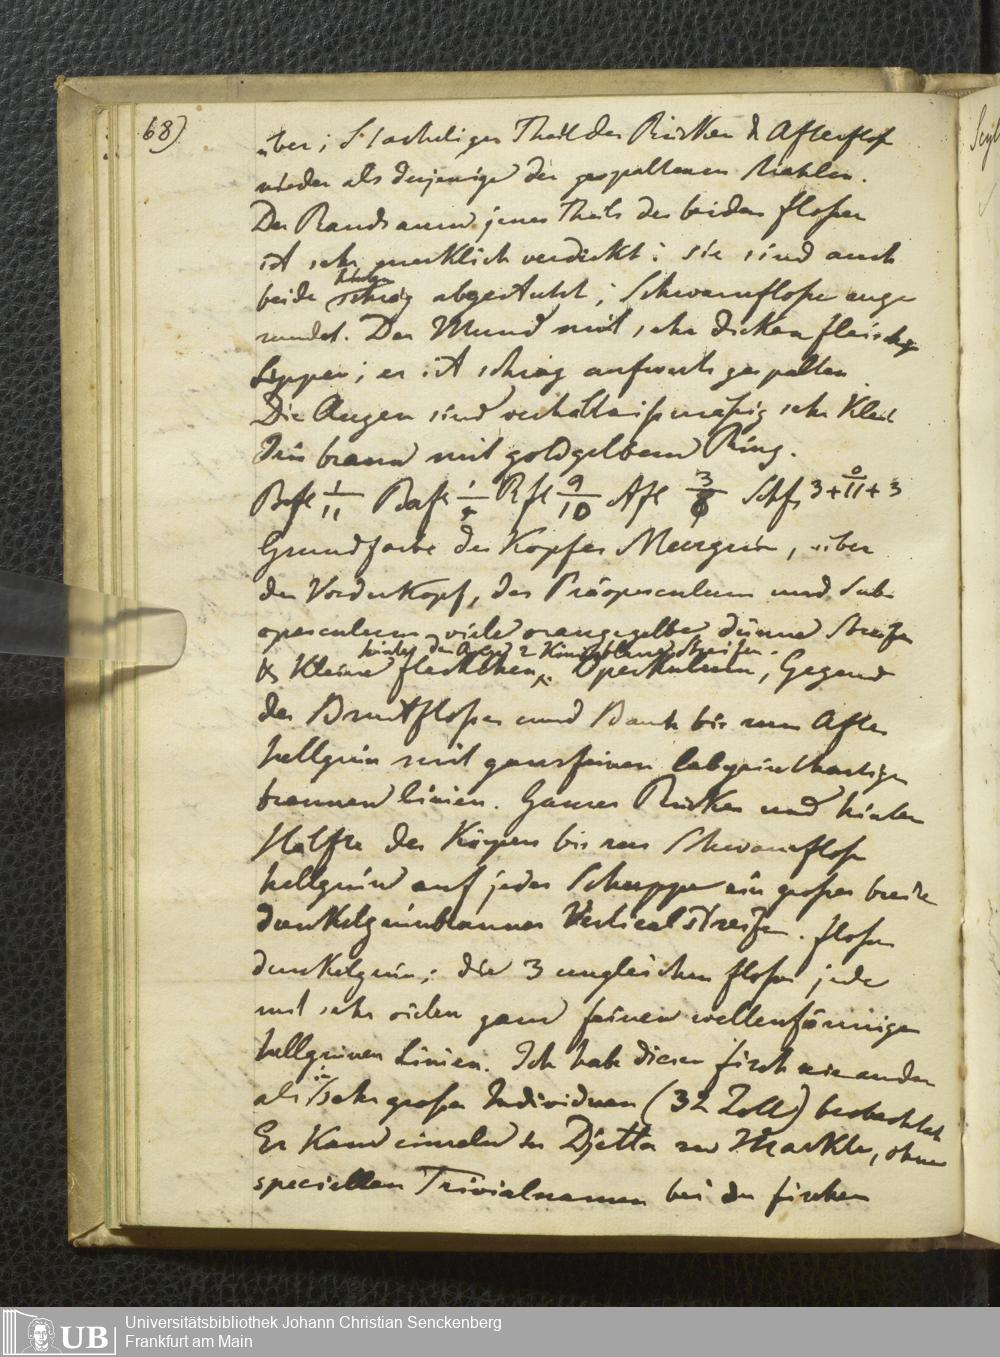 68)
über; Stacheliger Theil der Rücken & Afterflosse
nieder als derjenige der gespaltenen Strahlen.
Der Rand jenes Theils der beiden Flossen
ist sehr merklich verdickt; sie sind auch
beide schräg abgestutzt; Schwanzflosse abge
rundet. Der Mund mit sehr dicken fleischigen
Lippen; er ist schräg aufwerts gespalten
Die Augen sind verhältnissmässig sehr klein
Iris braun mit goldgelbem Ring.
Brfl 1/11 Bafl 1/5 Rfl 9/10 Afl 3/8 Schfl 3+0/11+3
Grundfarbe des Kopfes Meergrün, über
den Vorderkopf, das Präoperculum und Sub
operculum viele orangegelbe dünne Streifen
hinter dem Auge 2 Streifen.
& kleine fleckchen, Operkulum, Gegend
der Brustflosse und Bauch bis zum After
hellgrün mit ganz feinen labyrinthartigen
braunen Linien. Ganzer Rücken und hintere
Hälfte des Körpers bis zur Schwanzflosse
hellgrün auf jeder Schuppe ein grosser breiter
dunkelgrünbrauner Verticalstreifen. Flossen
dunkelgrün; die 3 ungleichen Flossen jede
mit sehr vielen ganz feinen wellenförmigen
hellgrünen Linien. Ich habe diesen Fisch nie anders
als in sehr grossen Individuen (32 Zoll) beobachtet
Er kam einzeln in Djetta zu Markte, ohne
speciellen Trivialnamen bei den Fischern
UB
Universitätsbibliothek Johann Christian Senckenberg
Frankfurt am Main